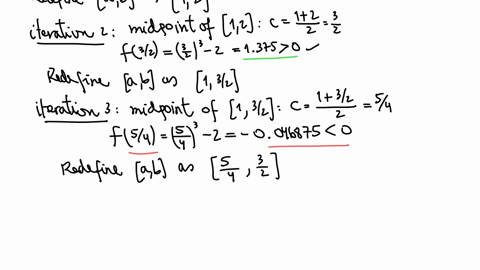 Redefine [a,b] as [1,2]
iteration 2: midpoint of [1,2]: c = (1+2)/2 = 3/2
f(3/2) = (3/2)^3 - 2 = 1.375 > 0 ✓
Redefine [a,b] as [1, 3/2]
iteration 3: midpoint of [1, 3/2]: c = (1+3/2)/2 = 5/4
f(5/4) = (5/4)^3 - 2 = -0.046875 < 0
Redefine [a,b] as [5/4, 3/2]